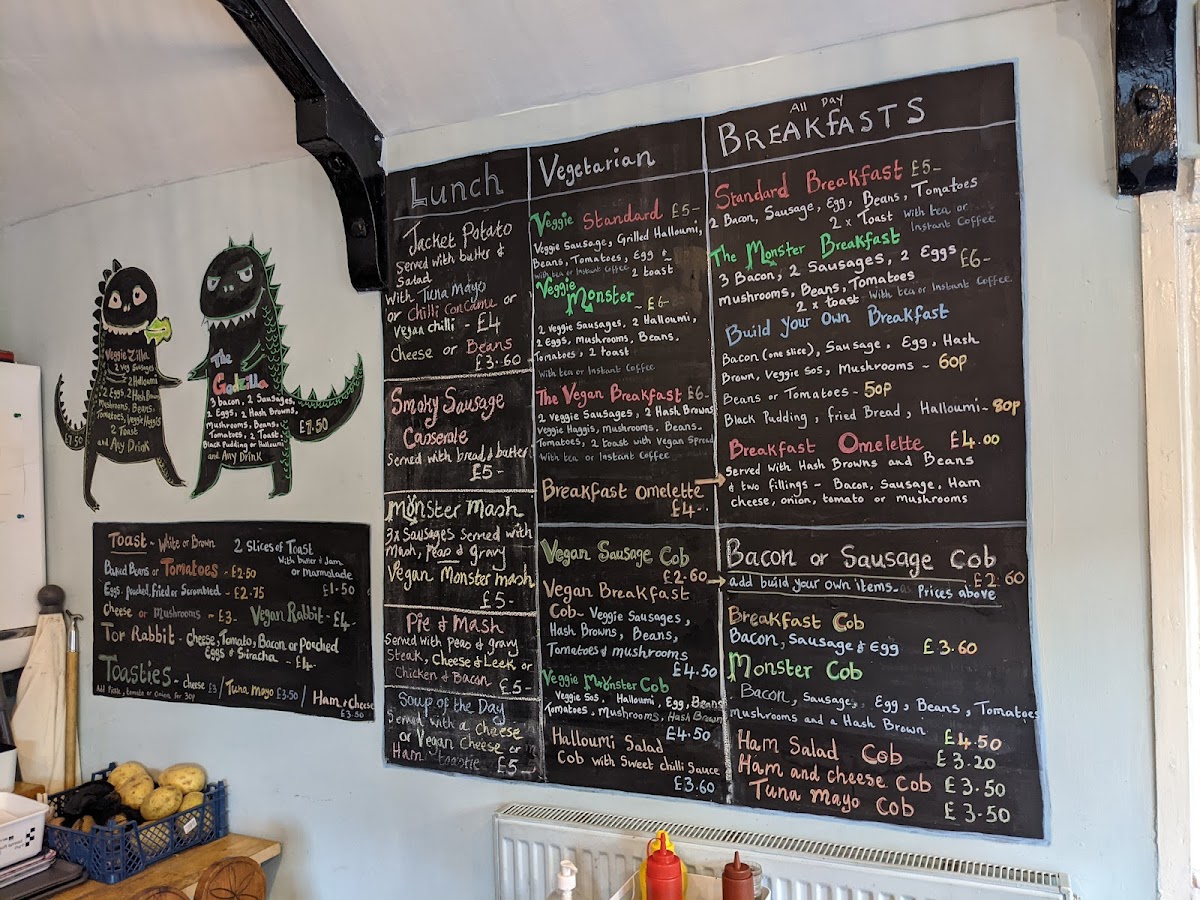 Veggie Zilla
2 veg sausages
2 Halloumi
2 Eggs, 2 Hash Browns
Mushrooms, Beans,
Tomatoes, Veggie Haggis
2 Toast
and Any Drink
£7.50
The
Godzilla
3 bacon, 2 Sausages,
2 Eggs, 2 Hash Browns,
Mushrooms, Beans,
Tomatoes, 2 Toast,
Black Pudding or Halloumi
and Any Drink
£7.50
Toast - White or Brown
2 slices of Toast
with butter & Jam
or marmalade
£1.50
Baked Beans or Tomatoes - £2.50
Eggs. poached, fried or Scrambled - £2.75
Cheese or Mushrooms - £3-
Vegan Rabbit - £4-
Tor Rabbit - cheese, Tomato, Bacon or Poached
Eggs & Siracha - £4-
Toasties - cheese £3 / Tuna mayo £3.50 / Ham & Cheese
£3.50
Add Pickle, tomato or Onion for 30p
Lunch
Jacket Potato
Served with butter &
Salad
with Tuna Mayo
or Chilli Con Carne or
Vegan chilli - £4
Cheese or Beans
£3.60
Smoky Sausage
Casserole
Served with bread & butter
£5-
Monster Mash
3x Sausages served with
Mash, peas & gravy
Vegan Monster mash
£5-
Pie & Mash
Served with peas & gravy
Steak, Cheese & Leek or
Chicken & Bacon
£5-
Soup of the Day
Served with a cheese
or Vegan Cheese or
Ham toastie £5-
Vegetarian
Veggie Standard £5-
Veggie Sausage, Grilled Halloumi,
Beans, Tomatoes, Egg &
With tea or Instant Coffee 2 toast
Veggie
Monster - £6-
2 Veggie Sausages, 2 Halloumi,
2 Eggs, Mushrooms, Beans,
Tomatoes, 2 toast
With tea or Instant Coffee
The Vegan Breakfast £6-
2 Veggie Sausages, 2 Hash Browns
Veggie Haggis, mushrooms, Beans.
Tomatoes, 2 toast with Vegan Spread
With tea or Instant Coffee
Breakfast Omelette
£4-
Vegan Sausage Cob
£2.60
Vegan Breakfast
Cob - Veggie Sausages,
Hash Browns, Beans,
Tomatoes & mushrooms
£4.50
Veggie Monster Cob
Veggie Sos, Halloumi, Egg, Beans
Tomatoes, mushrooms, Hash Brown
£4.50
Halloumi Salad
Cob with Sweet chilli Sauce
£3.60
All Day
BREAKfASTS
Standard Breakfast £5-
2 Bacon, Sausage, Egg, Beans, Tomatoes
2 x Toast With tea or
Instant Coffee
The Monster Breakfast
3 Bacon, 2 Sausages, 2 Eggs £6-
mushrooms, Beans, Tomatoes
2 x toast With tea or Instant Coffee
Build Your Own Breakfast
Bacon (one slice), Sausage, Egg, Hash
Brown, Veggie Sos, Mushrooms - 60p
Beans or Tomatoes - 50p
Black Pudding, fried Bread, Halloumi - 80p
Breakfast Omelette £4.00
Served with Hash Browns and Beans
& two fillings - Bacon, Sausage, Ham
cheese, onion, tomato or mushrooms
Bacon or Sausage Cob
£2.60
add build your own items - as Prices above
Breakfast Cob
Bacon, Sausage & Egg £3.60
Monster Cob
Bacon, Sausage, Egg, Beans, Tomatoes
Mushrooms and a Hash Brown £4.50
Ham Salad Cob £3.20
Ham and cheese Cob £3.50
Tuna Mayo Cob £3.50